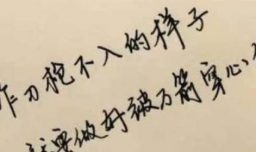 作刀枪不入的样子
就要做好被万箭穿心